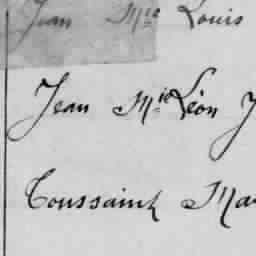 Jean Mie Louis
Jean Mie Léon
Toussaint